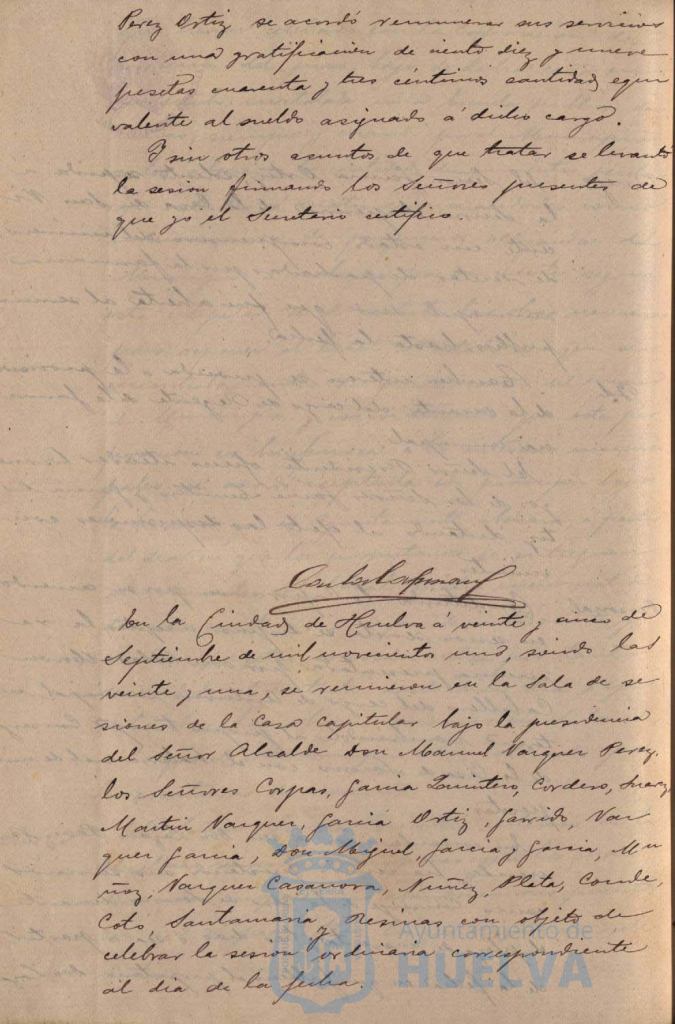 Perez Ortiz se acordó remunerar sus servicios
con una gratificacion de ciento diez y nueve
pesetas cuarenta y tres céntimos cantidad equi
valente al sueldo asignado á dicho cargo.
Y sin otros asuntos de que tratar se levantó
la sesion firmando los Señores presentes de
que yo el Secretario certifico.
En la Ciudad de Huelva á veinte y cinco de
Septiembre de mil novecientos uno, siendo las
veinte y una, se reunieron en la Sala de se
siones de la Casa Capitular bajo la presidencia
del Señor Alcalde Don Manuel Vazquez Perez,
los Señores Corpas, Garcia Quintero, Cordero, Suarez,
Martin Vazquez, Garcia Ortiz, Garrido, Vaz
quez Garcia, Don Miguel, Garcia y Garcia, Mu
ñoz, Vazquez Casanova, Nuñez, Plata, Conde,
Coto, Santamaria y Resinas con objeto de
celebrar la sesion ordinaria correspondiente
al dia de la fecha.
Ayuntamiento de
HUELVA